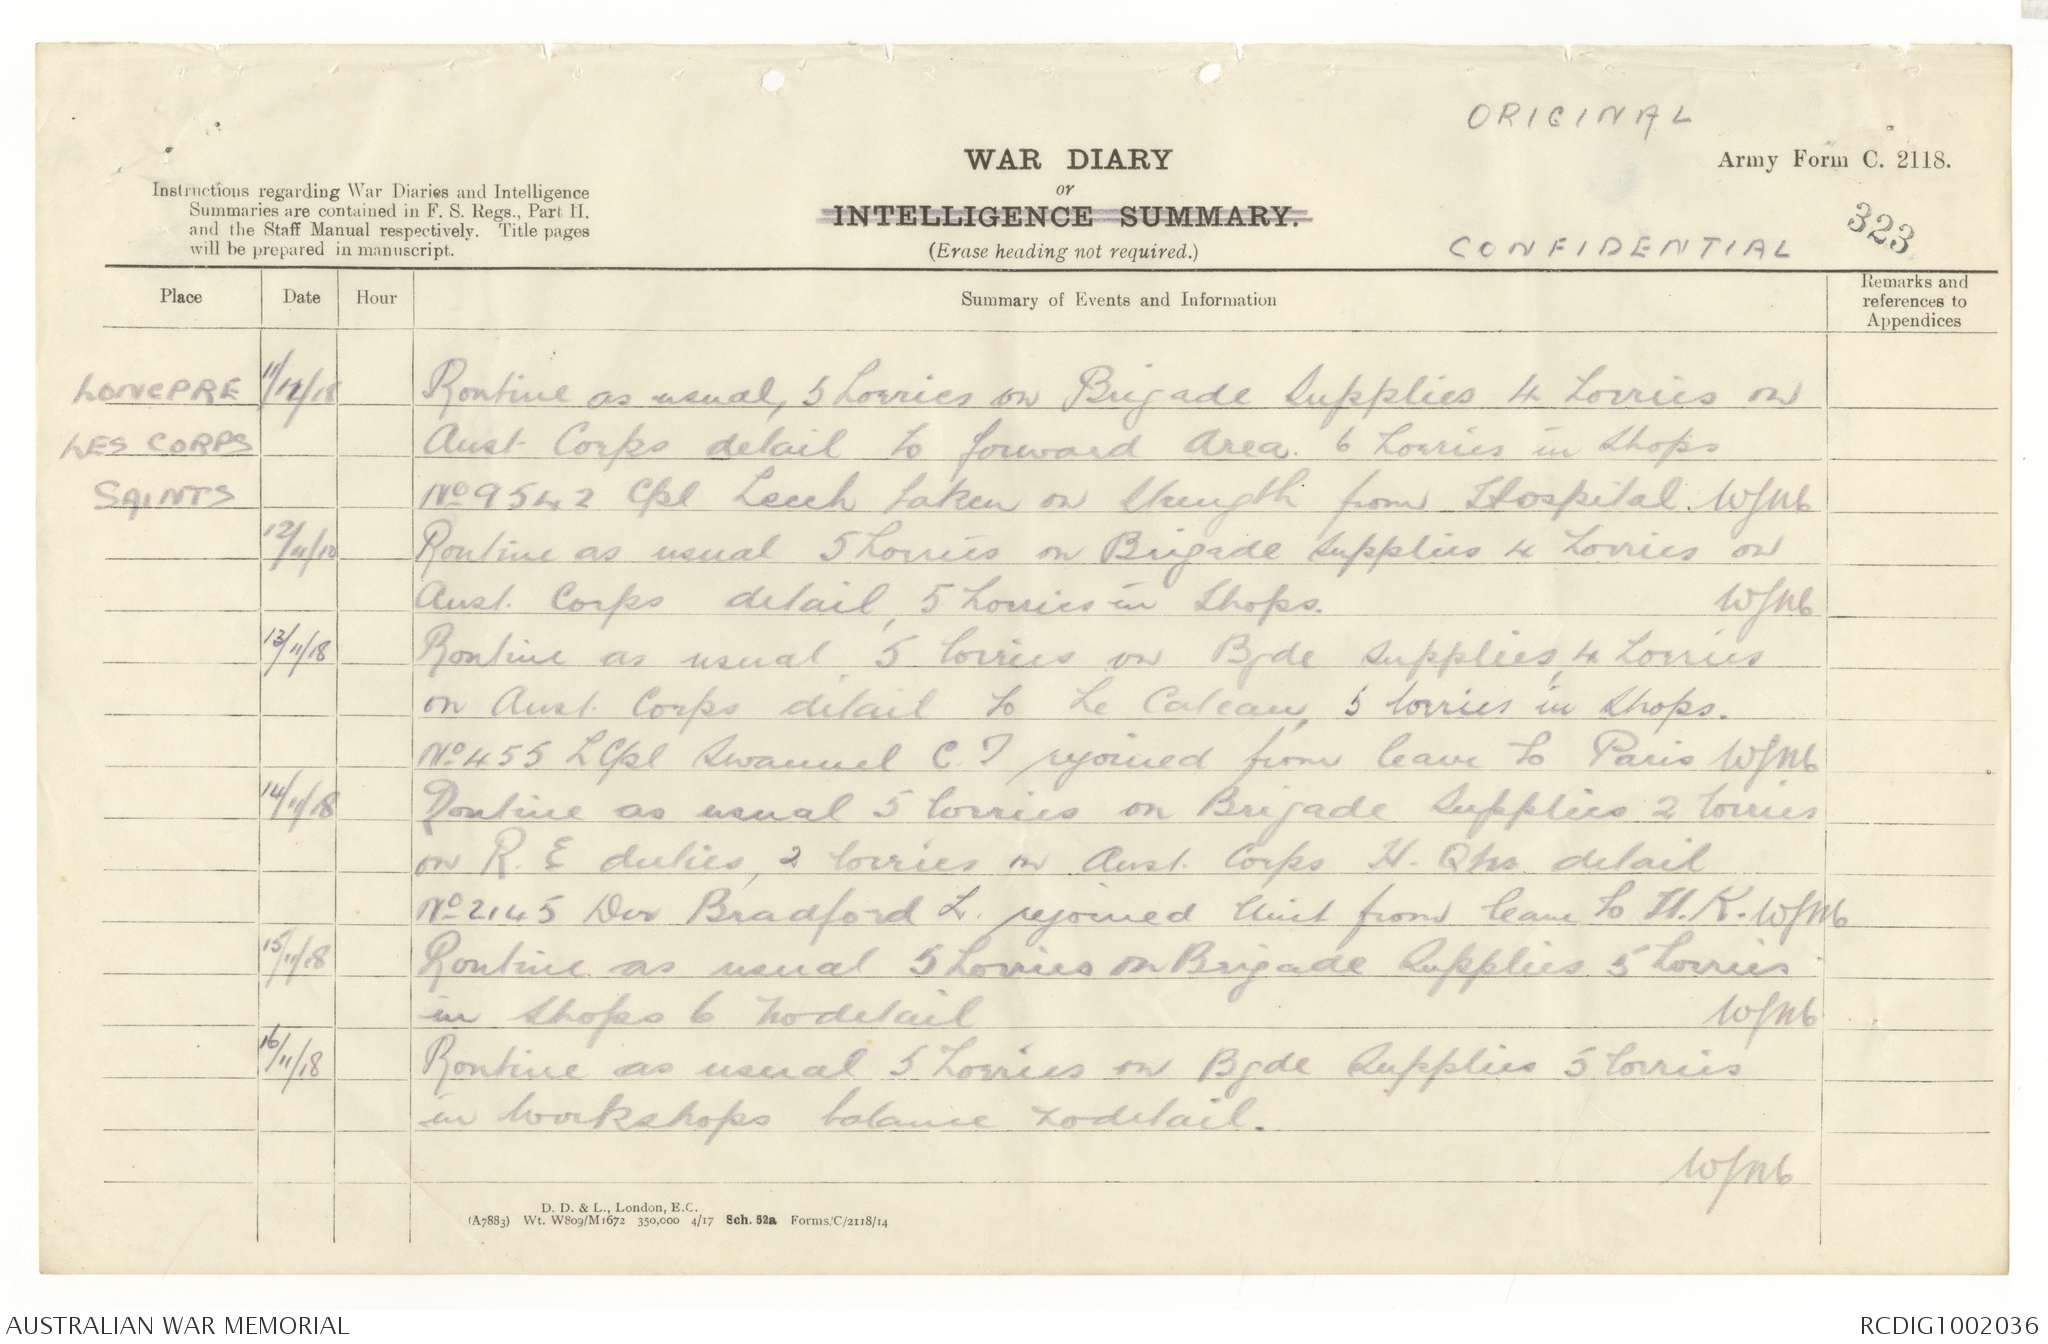 ORIGINAL
WAR DIARY
or
INTELLIGENCE SUMMARY.
(Erase heading not required.)
Army Form C. 2118.
Instructions regarding War Diaries and Intelligence
Summaries are contained in F. S. Regs., Part II.
and the Staff Manual respectively. Title pages
will be prepared in manuscript.
CONFIDENTIAL
323
Place Date Hour Summary of Events and Information Remarks and
references to
Appendices
LONGPRE 11/11/18 Routine as usual, 5 Lorries on Brigade Supplies 4 Lorries on
LES CORPS Aust. Corps detail to forward area. 6 Lorries in Shops
SAINTS No 9542 Cpl Leech taken on Strength from Hospital. WJMb
12/11/18 Routine as usual 5 Lorries on Brigade Supplies 4 Lorries on
Aust. Corps detail, 5 Lorries in Shops. WJMb
13/11/18 Routine as usual, 5 lorries on Bgde Supplies, 4 Lorries
on Aust. Corps detail to Le Cateau, 5 lorries in Shops.
No 455 L Cpl Swannel C. T rejoined from leave to Paris WJMb
14/11/18 Routine as usual 5 lorries on Brigade Supplies 2 lorries
on R. E duties, 2 lorries on Aust. Corps H. Qrs detail
No 2145 Dvr Bradford L. rejoined Unit from leave to U. K. WJMb
15/11/18 Routine as usual 5 Lorries on Brigade Supplies 5 Lorries
in Shops 6 No detail WJMb
16/11/18 Routine as usual 5 Lorries on Bgde Supplies 5 lorries
in workshops balance no detail.
WJMb
D. D. & L., London, E.C.
(A7883) Wt. W809/M1672 350,000 4/17 Sch. 52a Forms/C/2118/14
AUSTRALIAN WAR MEMORIAL
RCDIG1002036